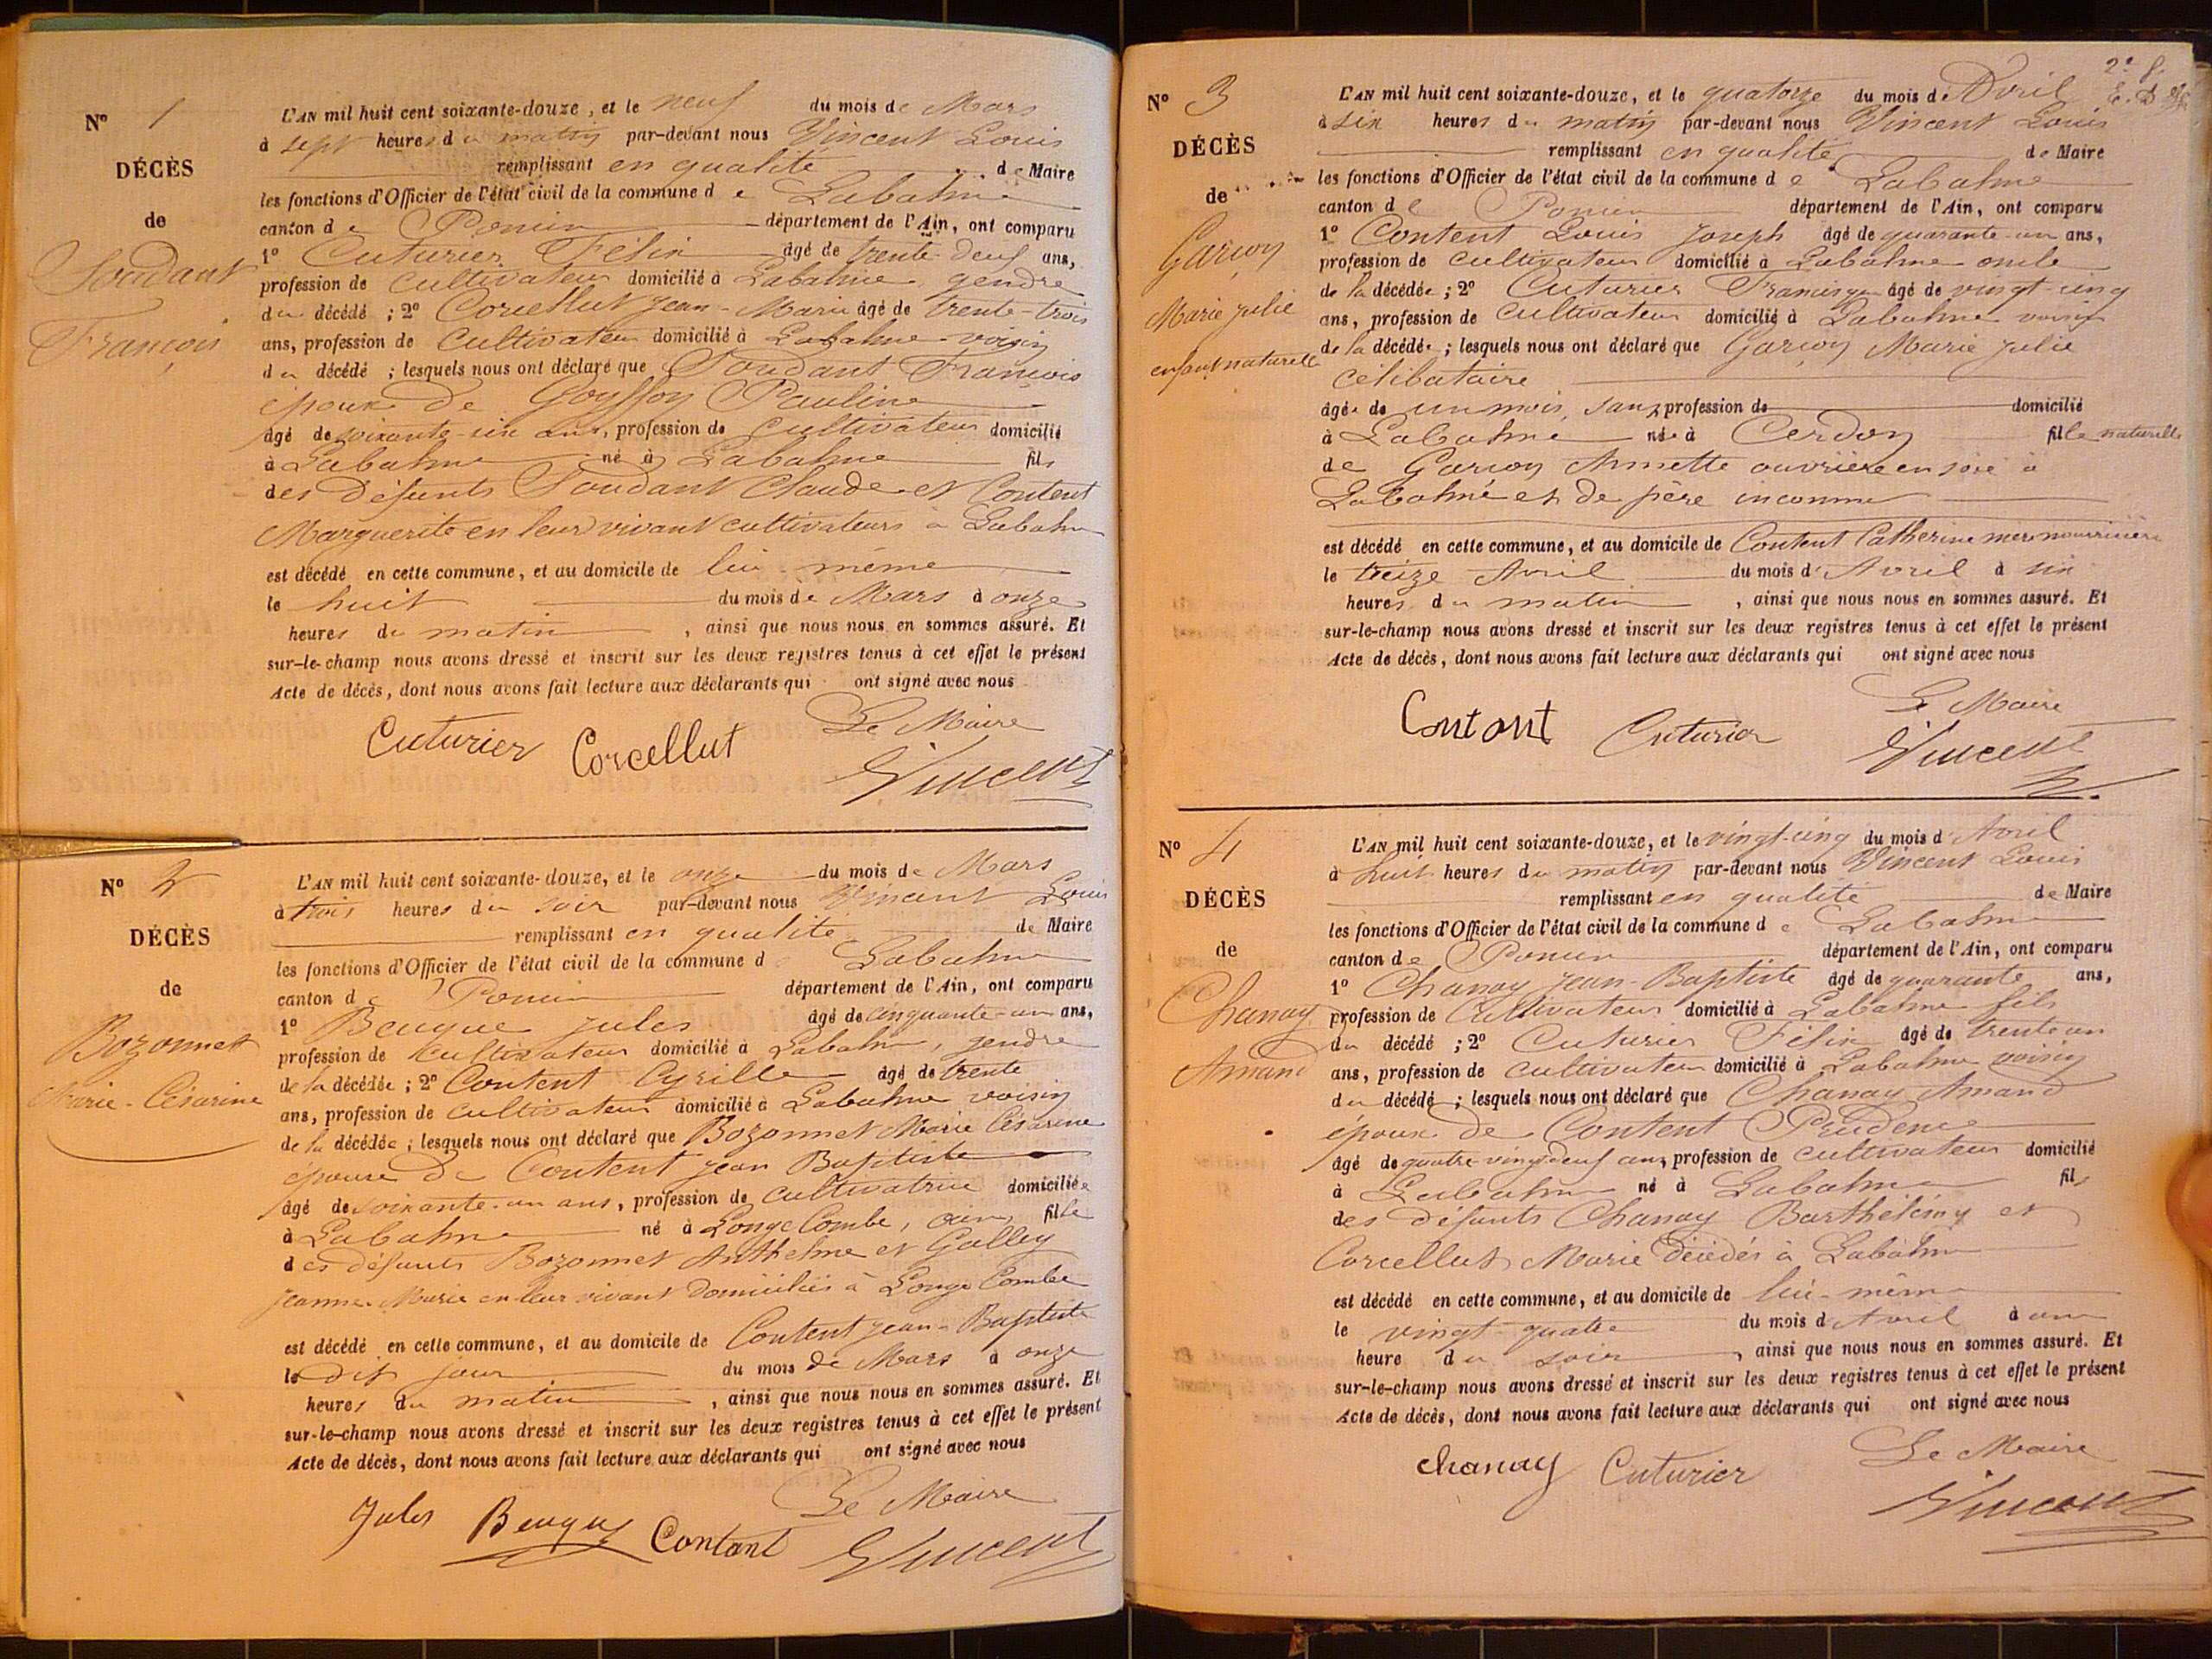 N° 1
DÉCÈS
de
Soudant
François
L'AN mil huit cent soixante-douze, et le neuf du mois de Mars
à sept heures du matin par-devant nous Vincent Louis
remplissant en qualité de Maire
les fonctions d'Officier de l'état civil de la commune de Labalme
canton de Poncin département de l'Ain, ont comparu
1° Cuturier Félix âgé de trente deux ans,
profession de cultivateur domicilié à Labalme, gendre
du décédé ; 2° Corcellut Jean-Marie âgé de trente-trois
ans, profession de cultivateur domicilié à Labalme voisin
du décédé ; lesquels nous ont déclaré que Soudant François
époux de Goyffon Pauline
âgé de soixante-six ans, profession de cultivateur domicilié
à Labalme né à Labalme fils
des défunts Soudant Claude et Content
Marguerite en leur vivant cultivateurs à Labalme
est décédé en cette commune, et au domicile de lui-même
le huit du mois de Mars à onze
heures du matin, ainsi que nous nous en sommes assuré. Et
sur-le-champ nous avons dressé et inscrit sur les deux registres tenus à cet effet le présent
Acte de décès, dont nous avons fait lecture aux déclarants qui ont signé avec nous
Le Maire
Cuturier Corcellut Vincent
N° 2
DÉCÈS
de
Bozonnet
Marie-Césarine
L'AN mil huit cent soixante-douze, et le onze du mois de Mars
à trois heures du soir par-devant nous Vincent Louis
remplissant en qualité de Maire
les fonctions d'Officier de l'état civil de la commune d Labalme
canton de Poncin département de l'Ain, ont comparu
1° Beuque Jules âgé de cinquante-un ans,
profession de cultivateur domicilié à Labalme, gendre
de la décédée ; 2° Content Cyrille âgé de trente
ans, profession de cultivateur domicilié à Labalme voisin
de la décédée ; lesquels nous ont déclaré que Bozonnet Marie Césarine
épouse de Content Jean Baptiste
âgé de soixante-un ans, profession de cultivatrice domiciliée
à Labalme né à Longe Combe, ain, fille
des défunts Bozonnet Anthelme et Galley
Jeanne-Marie en leur vivant domiciliés à Longe Combe
est décédé en cette commune, et au domicile de Content Jean-Baptiste
le dit jour du mois de Mars à onze
heures du matin, ainsi que nous nous en sommes assuré. Et
sur-le-champ nous avons dressé et inscrit sur les deux registres tenus à cet effet le présent
Acte de décès, dont nous avons fait lecture aux déclarants qui ont signé avec nous
Le Maire
Jules Beuque Contant Vincent
N° 3
DÉCÈS
de
Garcon
Marie Julie
enfant naturelle
L'AN mil huit cent soixante-douze, et le quatorze du mois d'Avril
à six heures du matin par-devant nous Vincent Louis
remplissant en qualité de Maire
les fonctions d'Officier de l'état civil de la commune de Labalme
canton de Poncin département de l'Ain, ont comparu
1° Content Louis Joseph âgé de quarante-un ans,
profession de cultivateur domicilié à Labalme oncle
de la décédée ; 2° Cuturier Francisque âgé de vingt-cinq
ans, profession de cultivateur domicilié à Labalme voisin
de la décédée ; lesquels nous ont déclaré que Garcon Marie Julie
célibataire
âgée de un mois, sans profession de domicilié
à Labalme née à Cerdon fille naturelle
de Garcon Annette ouvrière en soie à
Labalme et de père inconnu
est décédé en cette commune, et au domicile de Content Catherine mère nourricière
le treize Avril du mois d'Avril à six
heures du matin, ainsi que nous nous en sommes assuré. Et
sur-le-champ nous avons dressé et inscrit sur les deux registres tenus à cet effet le présent
Acte de décès, dont nous avons fait lecture aux déclarants qui ont signé avec nous
Le Maire
Contant Cuturier Vincent
N° 4
DÉCÈS
de
Chanay
Amand
L'AN mil huit cent soixante-douze, et le vingt-cinq du mois d'Avril
à huit heures du matin par-devant nous Vincent Louis
remplissant en qualité de Maire
les fonctions d'Officier de l'état civil de la commune de Labalme
canton de Poncin département de l'Ain, ont comparu
1° Chanay Jean-Baptiste âgé de quarante ans,
profession de Cultivateur domicilié à Labalme fils
du décédé ; 2° Cuturier Félix âgé de trente un
ans, profession de cultivateur domicilié à Labalme voisin
du décédé ; lesquels nous ont déclaré que Chanay Amand
époux de Content Prudence
âgé de quatre-vingt-deux ans, profession de cultivateur domicilié
à Labalme né à Labalme fils
des défunts Chanay Barthélémy et
Corcellut Marie décédés à Labalme
est décédé en cette commune, et au domicile de lui-même
le vingt-quatre du mois d'Avril à une
heure du soir, ainsi que nous nous en sommes assuré. Et
sur-le-champ nous avons dressé et inscrit sur les deux registres tenus à cet effet le présent
Acte de décès, dont nous avons fait lecture aux déclarants qui ont signé avec nous
Le Maire
Chanay Cuturier Vincent